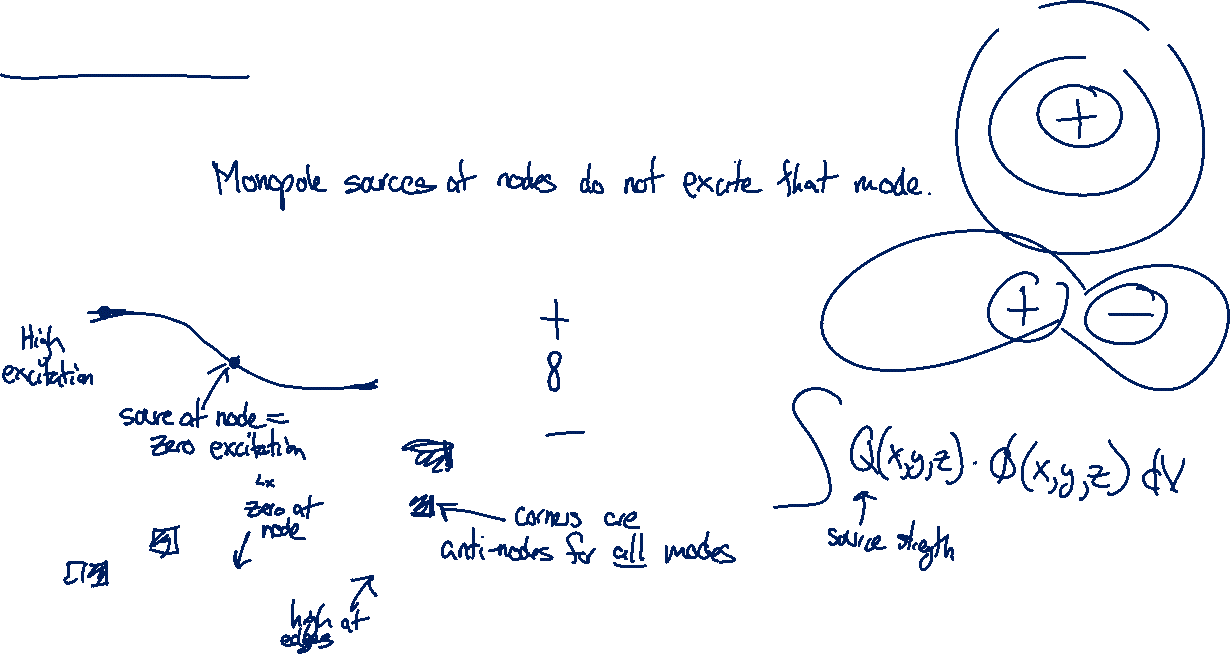 +
Monopole sources at nodes do not excite that mode.
+ −
High
excitation
+
8
−
source at node =
zero excitation
zero at
node
corners are
anti-nodes for all modes
high at
edges
∫ Q(x,y,z) · ϕ(x,y,z) dV
source strength